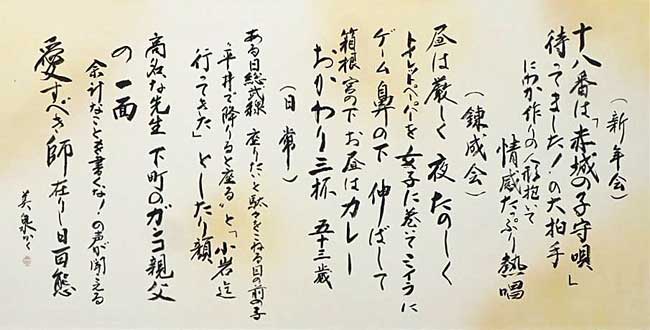 (新年会)
十八番は「赤城の子守唄」
待ってました!の大拍手
にわか作りの人形抱いて
情感たっぷり熱唱
(錬成会)
昼は厳しく 夜たのしく
トイレットペーパーを女子に巻いてミイラに
ゲーム鼻の下 伸ばして
箱根宮の下お昼はカレー
おかわり三杯 五十三歳
(日常)
ある日総武線 座りたいと駄々をこねる目の前の子
平井で降りると座る」と「小岩迄
行ってきた」としたり顔
高名な先生 下町のガンコ親父
の一面
余計なことを書くな!の声が聞える
愛すべき師 在りし日百態
美泉かく